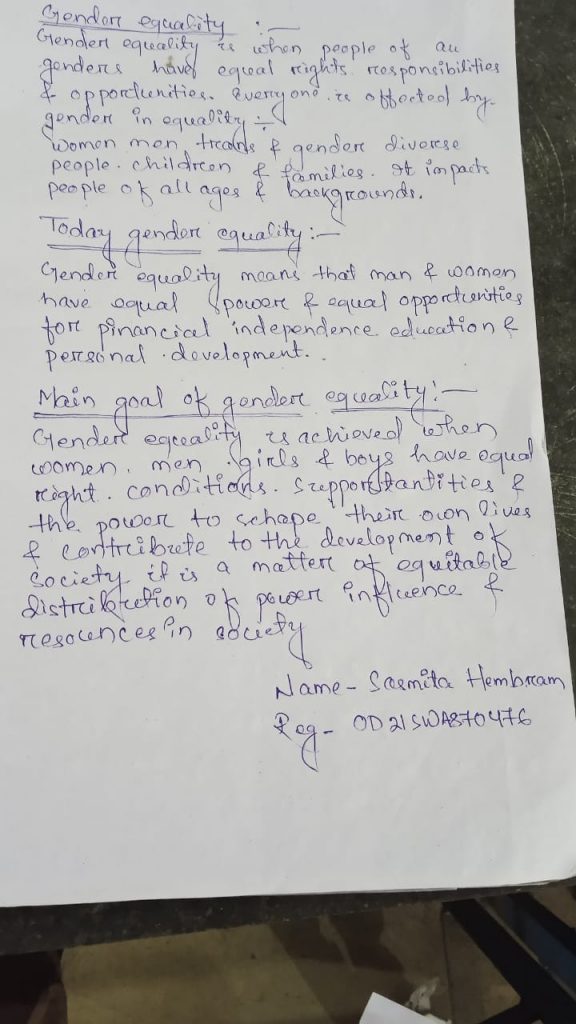 Gender equality :-
Gender equality is when people of au
genders have equal rights. responsibilities
& opportunities. Everyone is affected by.
gender in equality :-
women men, trans & gender diverse
people. children & families. It impacts
people of all ages & backgrounds.
Today gender equality :-
Gender equality means that man & women
have equal power & equal opportunities
for pinancial independence education &
personal development..
Main goal of gender equality :-
Gender equality is achieved when
women. men girls & boys have equal
right. conditions. &
the power to schape their own lives
& contribute to the development of
society it is a matter of equitable
distribution of power influence &
resources in society
Name - Sasmita Hembram
Reg - OD21SWA870476